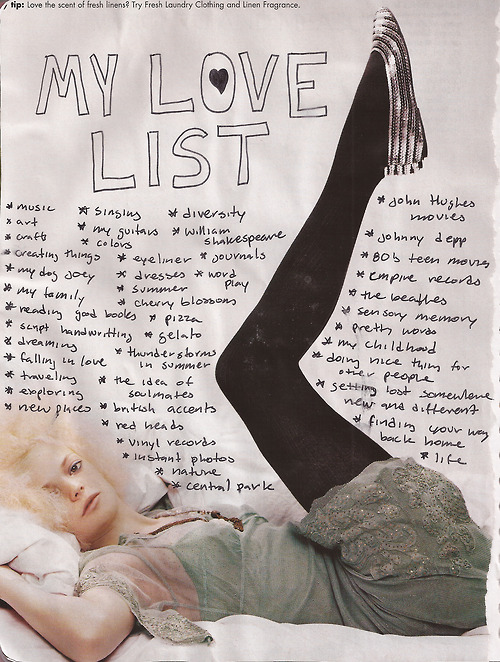 tip: Love the scent of fresh linens? Try Fresh Laundry Clothing and Linen Fragrance.
MY LOVE
LIST
* music
* art
* craft
* creating things
* my dog joey
* my family
* reading good books
* script handwritting
* dreaming
* falling in love
* traveling
* exploring
* new places
* singing
* my guitars
* colors
* eyeliner
* dresses
* summer
* cherry blossoms
* pizza
* gelato
* thunderstorms
in summer
* the idea of
soulmates
* british accents
* red heads
* vinyl records
* instant photos
* nature
* central park
* diversity
* william
shakespeare
* journals
* word
play
* john hughes
movies
* johnny depp
* 80s teen movies
* empire records
* the beatles
* sensory memory
* pretty words
* my childhood
* doing nice thing for
other people
* getting lost somewhere
new and different
* finding your way
back home
* life